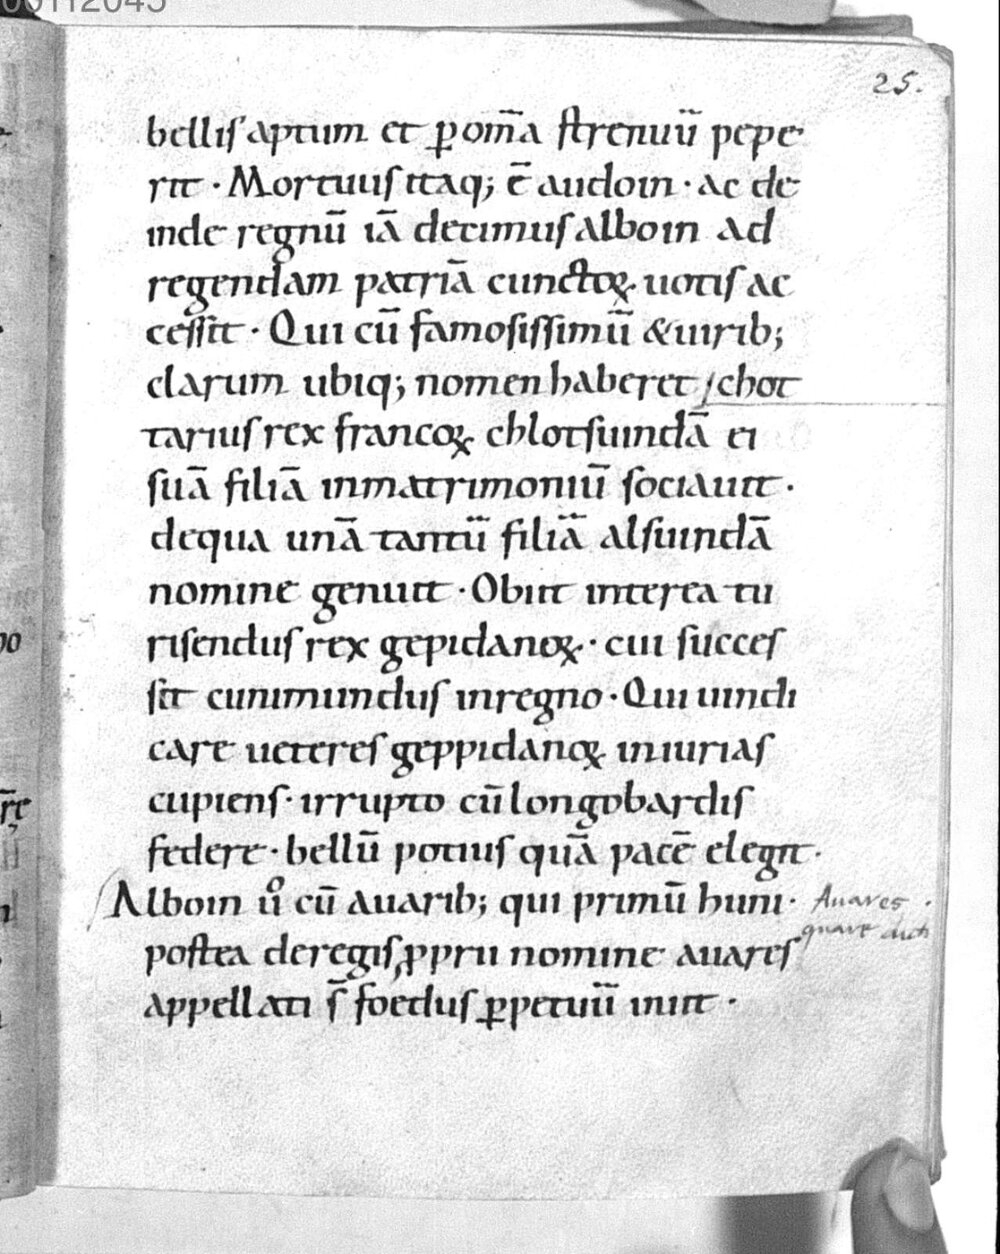 00112045
25.
bellis aptum et ꝑ om̄a strenuū pepe
rit · Mortuus itaq; ē audoin · ac de
inde regnū iā decimus alboin ad
regendam patriā cunctoꝝ uotis ac
cessit · Qui cū famosissimū & uirib;
clarum ubiq; nomen haberet chot
tarius rex francoꝝ chlotsuindā ei
suā filiā inmatrimoniū sociauit ·
dequa unā tantū filiā alsuindā
nomine genuit · Obiit interea tu
risendus rex gepidanoꝝ · cui succes
sit cunimundus inregno · Qui uindi
care ueteres geppidanoꝝ iniurias
cupiens · irrupto cū longobardis
federe · bellū potius quā pacē elegit ·
Alboin uͦ cū auarib; qui primū huni ·
Auares
quare dicti
postea deregis ꝓprii nomine auares
appellati s̄ foedus ꝑpetuū iniit ·